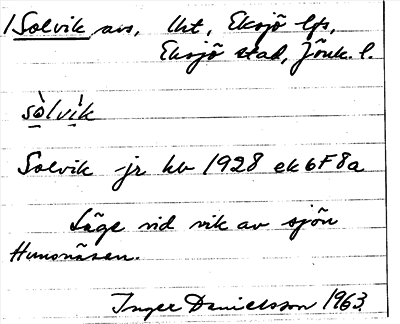 Solvik avs, lht, Eksjö lfs,
Eksjö stad, Jönk. l.
sòlvìk
Solvik jr hb 1928 ek 6F8a
Läge vid vik av sjön
Hunsnäsen.
Inger Danielsson 1963